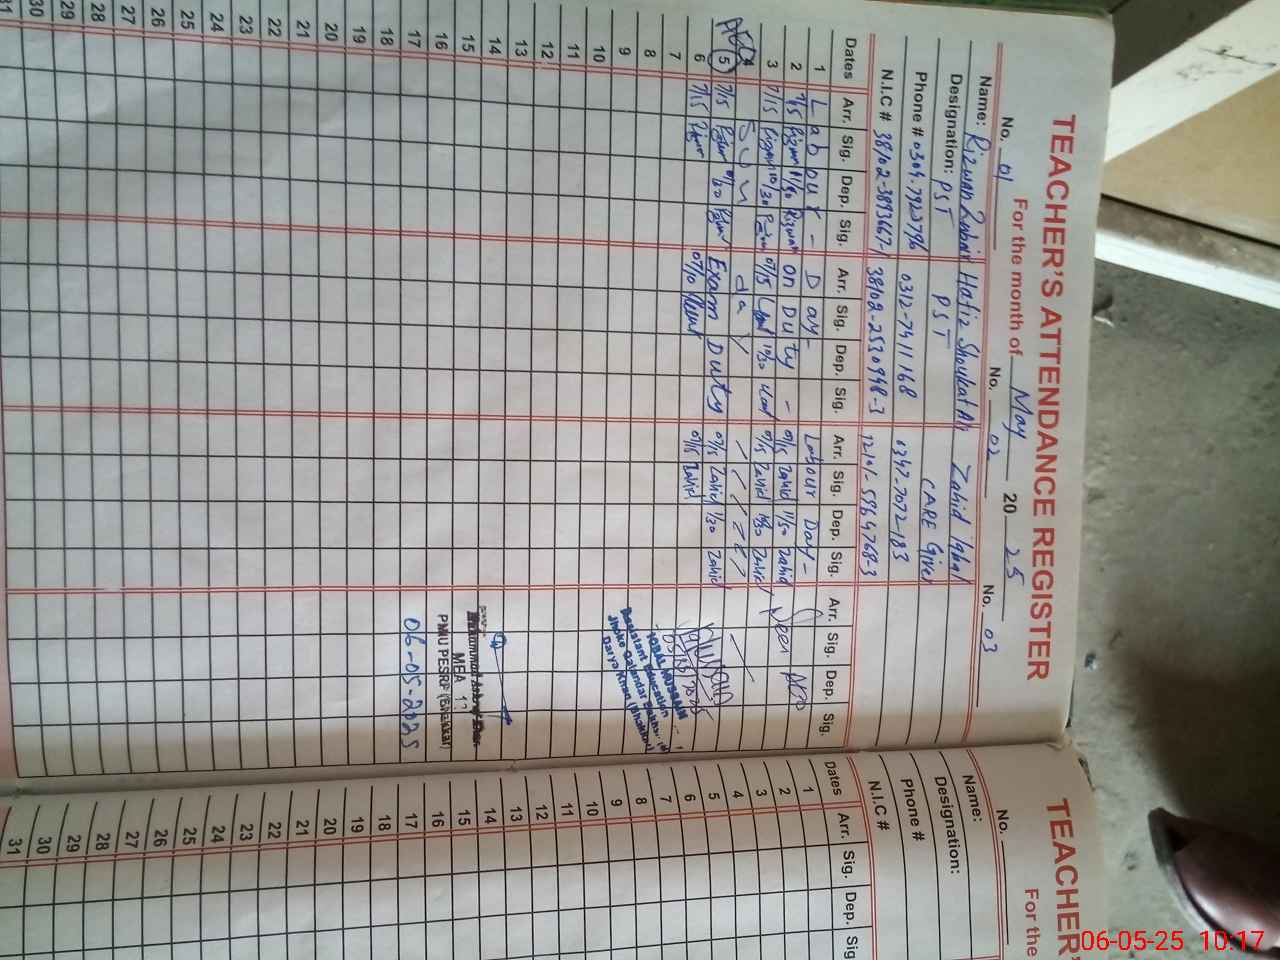 TEACHER'S ATTENDANCE REGISTER
For the month of May 20 25
No. 01 No. 02 No. 03
Name: Rizwan Hafiz Shoukat Ali Zahid Iqbal
Designation: PST PST CARE Giver
Phone # 0304-7923796 0312-7411168 0347-7072183
N.I.C # 38102-3893667-1 38102-2530948-3
Dates Arr. Sig. Dep. Sig. Arr. Sig. Dep. Sig. Arr. Sig. Dep. Sig. Arr. Sig. Dep. Sig.
1 Labour - Day - Labour Day -
2 7/15 Rizwan 11/50 Rizwan On Duty - 07/15 Zahid 11/50 Zahid
3 7/15 10/30 07/15 10/30 07/15 Zahid 10/30 Zahid
4 Sunday
5 7/15 01/30 Exam Duty 07/15 Zahid 1/30 Zahid
6 7/15 07/10 07/15 Zahid
7
8
9
10
11
12
13
14
15
16
17
18
19
20
21
22
23
24
25
26
27
28
29
30
31
Seen
IQBAL HUSSAIN
Assistant Education
Darya Khan (Bhakkar)
MEA
PMIU PESRP (Bhakkar)
06-05-2025
TEACHER'
For the
No.
Name:
Designation:
Phone #
N.I.C #
Dates Arr. Sig. Dep. Sig
1
2
3
4
5
6
7
8
9
10
11
12
13
14
15
16
17
18
19
20
21
22
23
24
25
26
27
28
29
30
31
06-05-25 10:17